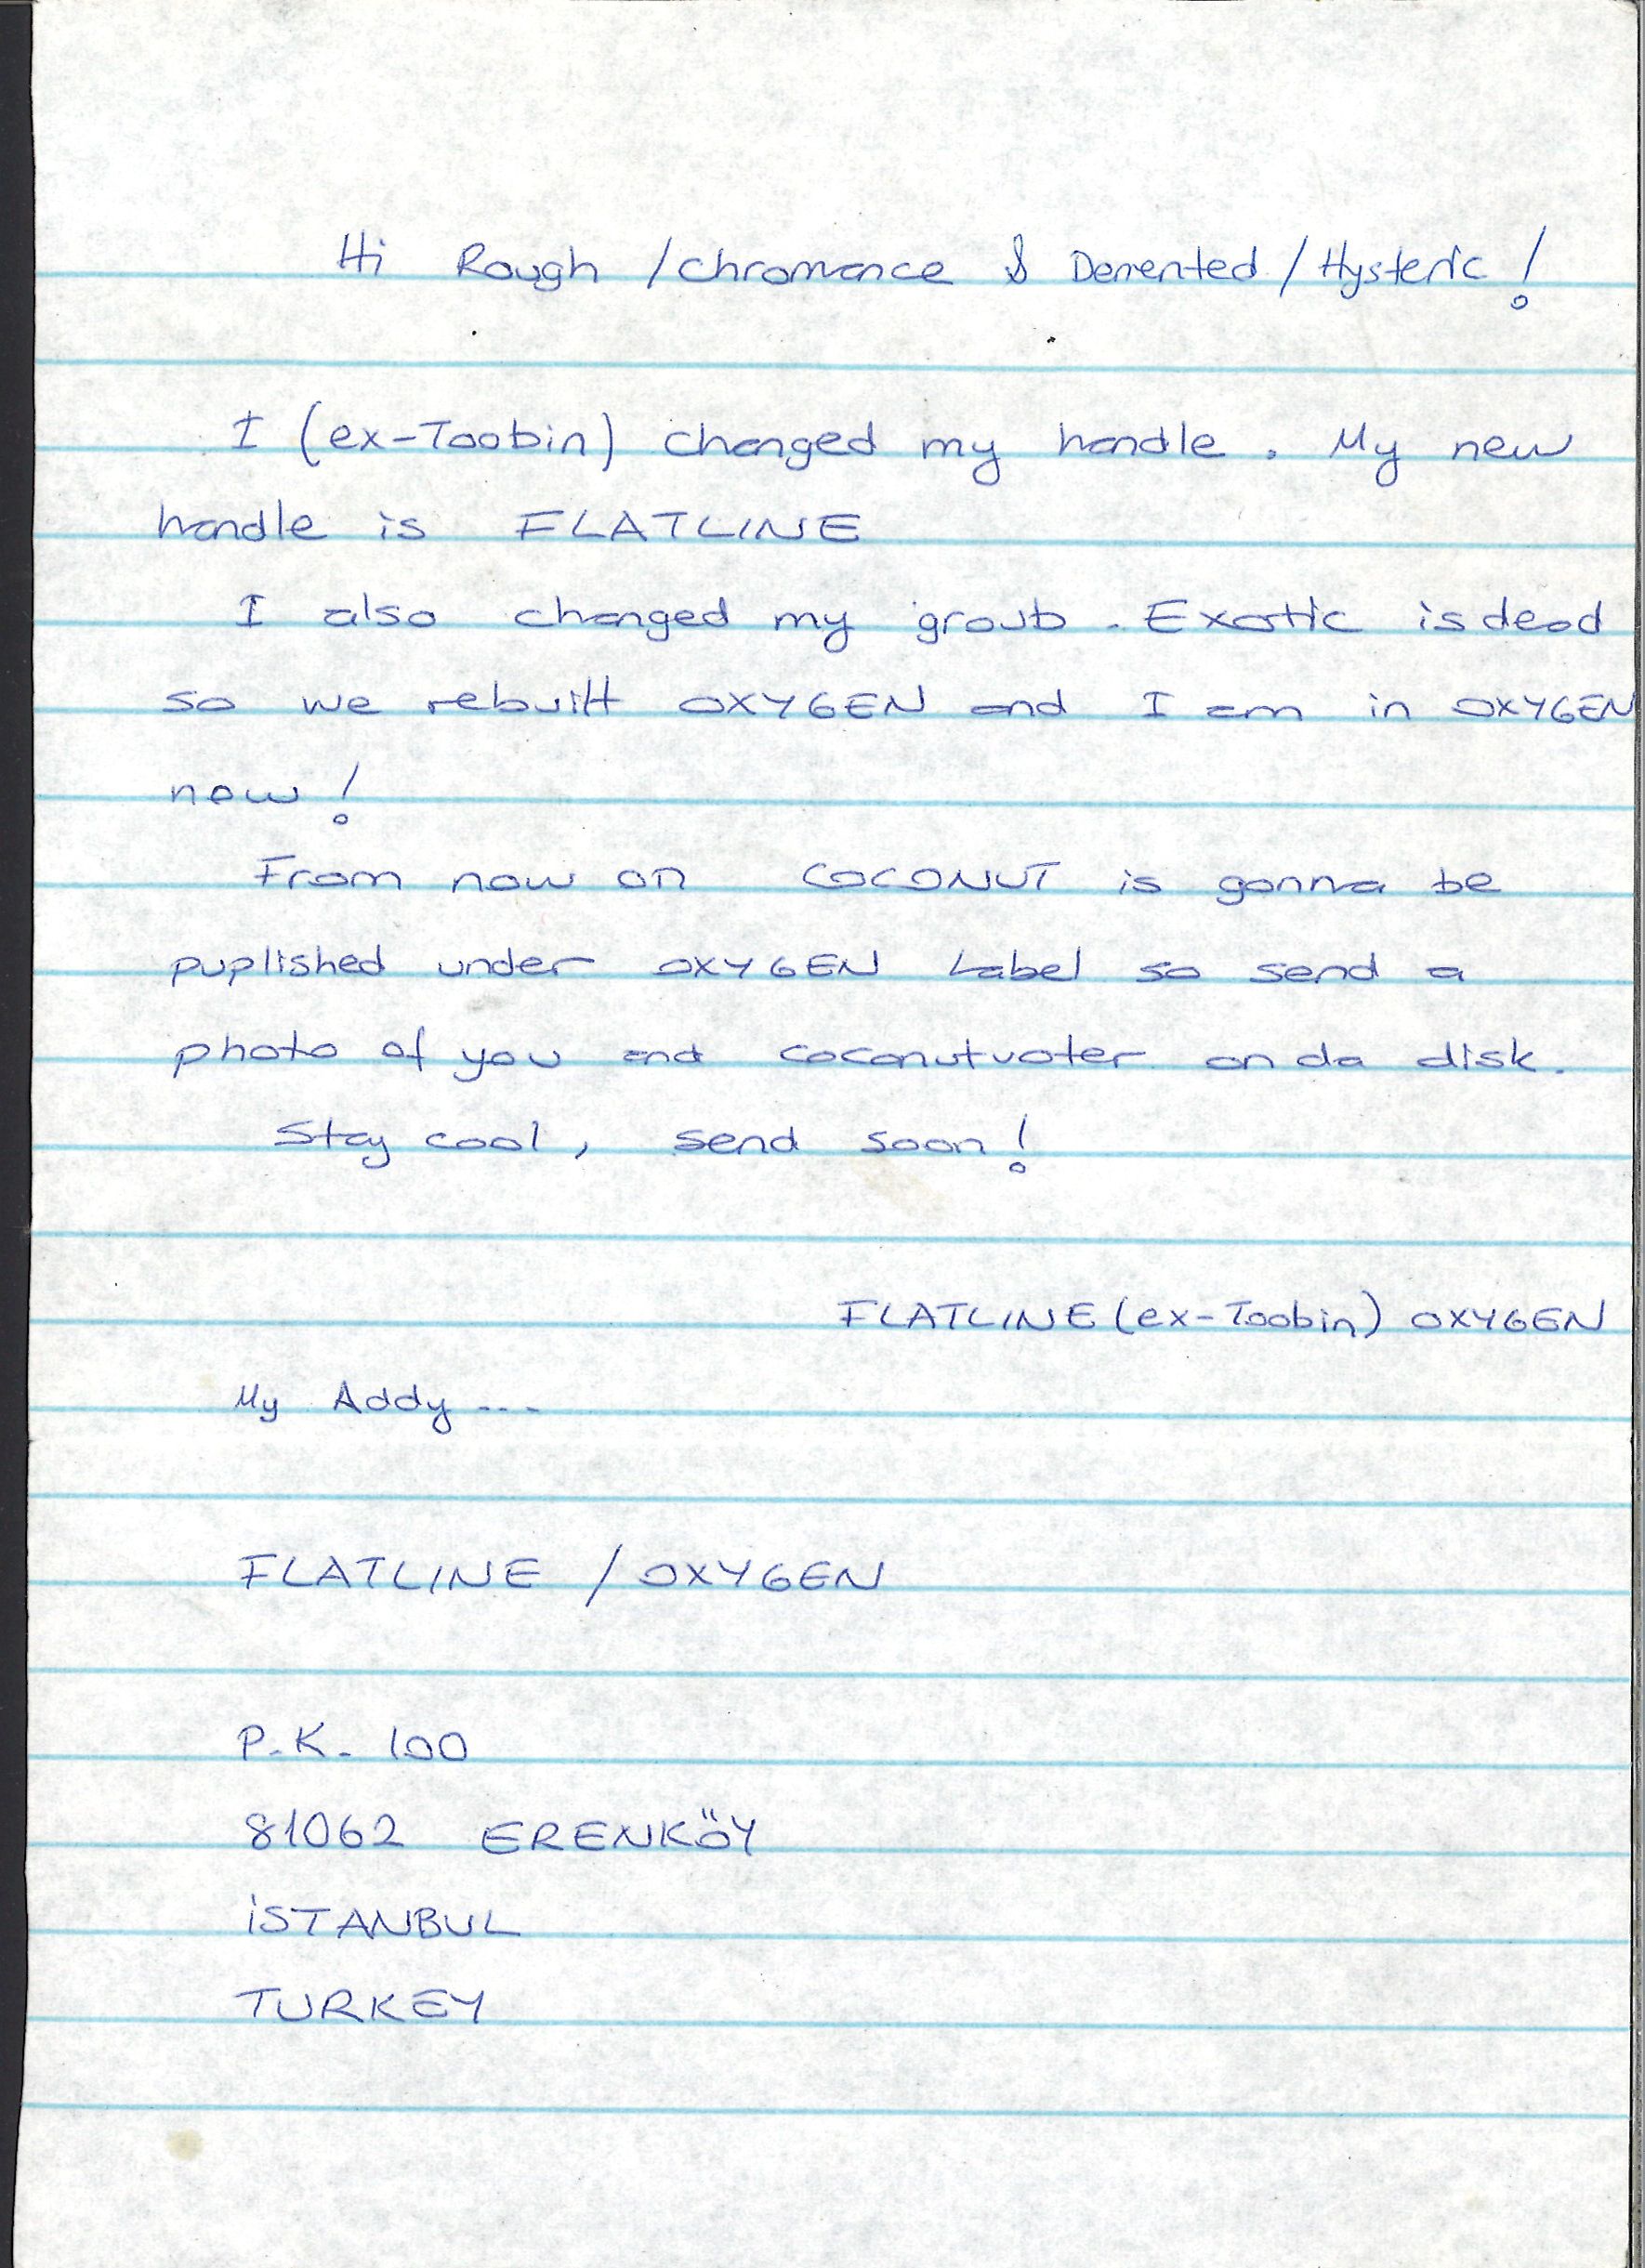 Hi Rough /Chromance & Demented / Hysteric !
I (ex-Toobin) changed my handle. My new
handle is FLATLINE
I also changed my groub. Exotic is dead
so we rebuilt OXYGEN and I am in OXYGEN
now !
From now on COCONUT is gonna be
puplished under OXYGEN Label so send a
photo of you and coconutvoter on da disk.
Stay cool, send soon!
FLATLINE (ex-Toobin) OXYGEN
My Addy ---
FLATLINE / OXYGEN
P.K. 100
81062 ERENKÖY
İSTANBUL
TURKEY